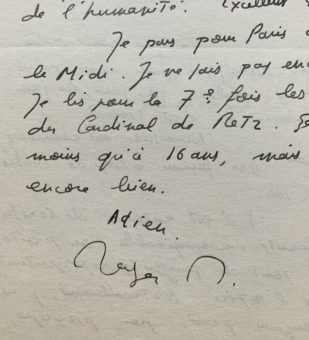 de l'humanité. Excellent
Je pars pour Paris
le Midi. Je ne sais pas en
Je lis pour la 7e fois les
du Cardinal de Retz.
moins qu'à 16 ans, mais
encore bien.
Adieu.
Roger N.